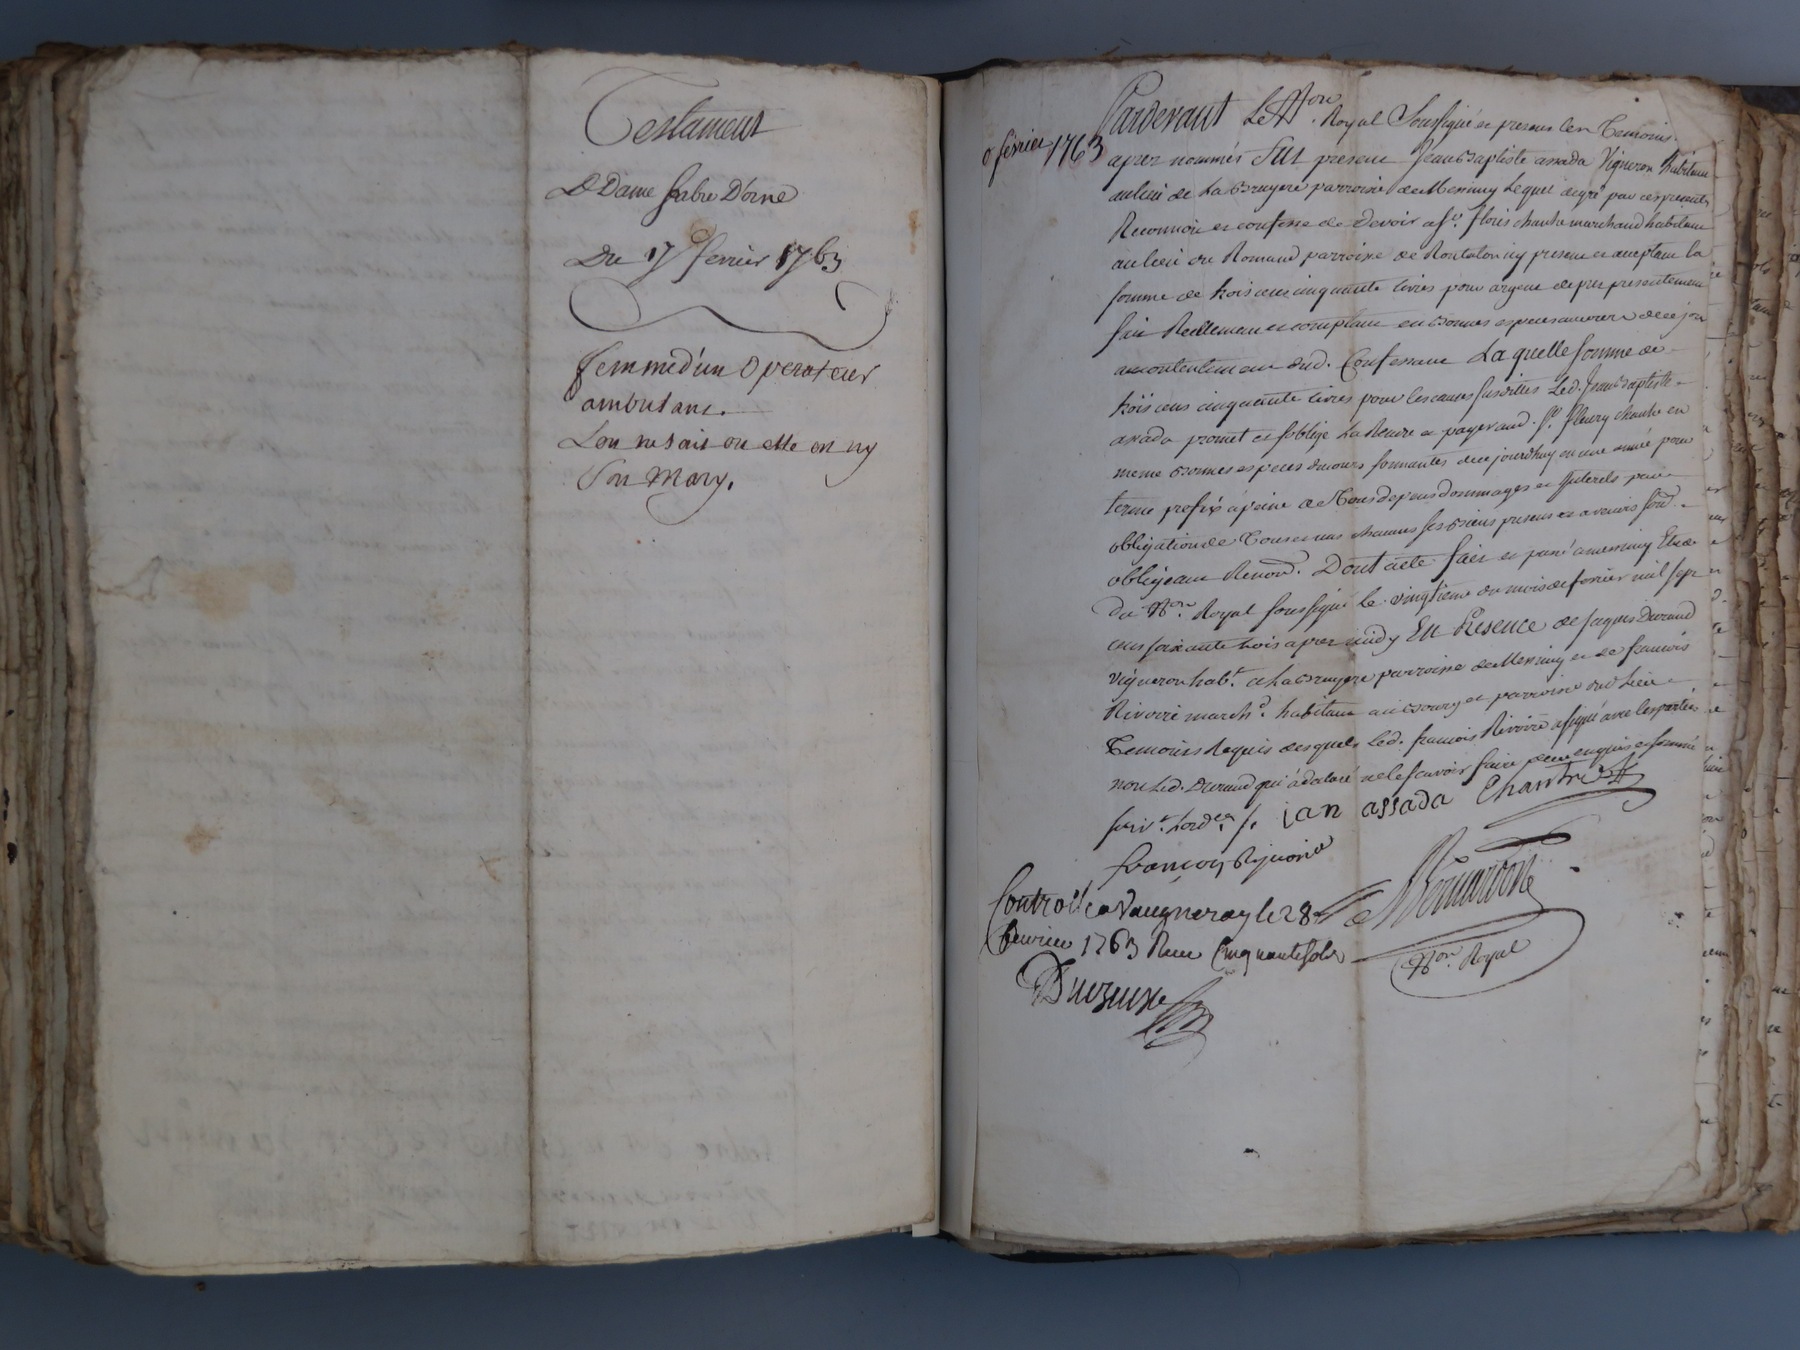 Testament
De Dame fabre D'orne
Du 17 fevrier 1763
femme d'un operateur
ambulant.
L'on ne sait ou elle en ny
son Mary.
0 février 1763
Pardevant Le Nore. Royal Soussigné et presens les Temoins
apres nommés fut present Jean Baptiste assada Vigneron habitant
au lieu de La Bruyere parroisse de Messimy Lequel de gré par ces presentes
Reconnoit et confesse de devoir a sr. floris chantre marchand habitant
au lieu du Romand parroisse de present et acceptant la
somme de trois cens cinquante livres pour argent de pret presentement
fait Reellement et comptant en Bonnes especes au cours de ce jour
a contentement dud. Confessant La quelle somme de
trois cens cinquante livres pour les causes susdittes Led. Jean Baptiste
assada promet et s'oblige La Rendre et payer aud. sr. fleury chantre en
meme Bonnes especes du cours sonnantes de ce jourdhuy en une année pour
terme prefix a peine de Tous depens dommages et Interets par
obligation de Tous et uns chacuns ses Biens presens et avenirs soud.
obligeant Renond. Dont acte fait et passé a messimy Etude
du Nore. Royal soussigné Le vingtieme du mois de fevrier mil sept
cens soixante trois apres midy En Presence de Jaques Durand
vigneron habt. a La Bruyere parroisse de Messimy et de francois
Rivoire marchd. habitant au Bourg et parroisse dud. Lieu
Temoins Requis desquels Led. francois Rivoire a signé avec les parties
non Led. Durand qui a declaré ne le scavoir faire de ce enquis et sommé
suivt. Lord.ce /. jan assada Chantre
francois Rivoire
Controllé a Vaugneray le 28e
fevrier 1763 Receu Cinquante sols
Nore. Royal